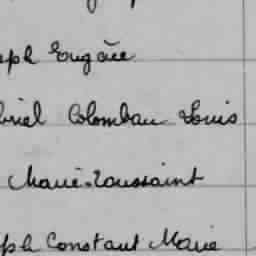 eph Eugène
briel Colomban Louis
Marie-Toussaint
eph Constant Marie